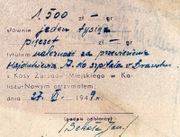 1500 zł — gr.
słownie jeden tysiąc
pięćset zł — gr.
tytułem należność za przewiezienie
do szpitala w Drawsku
z Kasy Zarządu Miejskiego w Ka-
liszu-Nowym otrzymałem:
dnia 27. VI. 1947 r.
(podpis odbiorcy)